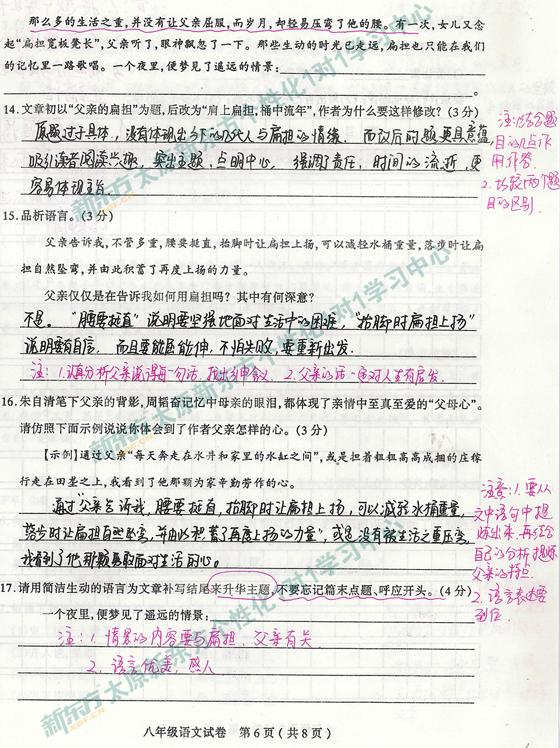 那么多的生活之重，并没有让父亲屈服，而岁月，却轻易压弯了他的腰。有一次，女儿又念
起“扁担宽板凳长”，父亲听了，眼神飘忽了一下。那些生动的时光已走远，扁担也只能在我们
的记忆里一路歌唱。一个夜里，便梦见了遥远的情景：
14.文章初以“父亲的扁担”为题，后改为“肩上扁担，桶中流年”，作者为什么要这样修改？（3分）
原题过于具体，没有体现出
人与扁担的情缘。而改后的题更具意蕴
吸引读者阅读兴趣，突出主题，点明中心，强调了责任，时间的流逝，更
容易体现主旨
注：1.结合题
目的几点作
用作答。
2.比较两个题
目的区别
15.品析语言。（3分）
父亲告诉我，不管多重，腰要挺直，抬脚时让扁担上扬，可以减轻水桶重量，落步时让扁
担自然坠弯，并由此积蓄了再度上扬的力量。
父亲仅仅是在告诉我如何用扁担吗？其中有何深意？
不是。“腰要挺直”说明要坚强地面对生活中的困难，“抬脚时扁担上扬”
说明要有自信，而且要能屈能伸，不怕失败，要重新出发.
注：1.认真分析父亲说得每一句话，找出引申含义. 2.父亲的话一定对人生有启发.
16.朱自清笔下父亲的背影，周韬奋记忆中母亲的眼泪，都体现了亲情中至真至爱的“父母心”。
请仿照下面示例说说你体会到了作者父亲怎样的心。（3分）
【示例】通过父亲“每天奔走在水井和家里的水缸之间”，或是担着粗粗高高成捆的庄稼
行走在田垄之上，我看到了他那颗为家辛勤劳作的心。
通过“父亲告诉我，腰要挺直，抬脚时让扁担上扬，可以减轻水桶重量，
落步时让扁担自然坠弯，并由此积蓄了再度上扬的力量”，或是没有被生活之重压弯，
我看到了他那颗勇敢面对生活的心。
注意：1.要从
文中语句中提
炼出来，再结合
自己的分析提炼
父亲的特点.
2.语言表达要
到位.
17.请用简洁生动的语言为文章补写结尾来升华主题，不要忘记篇末点题、呼应开头。（4分）
一个夜里，便梦见了遥远的情景：
注：1.情景的内容要与扁担、父亲有关
2.语言优美，感人
八年级语文试卷 第6页（共8页）
新东方太原新东方个性化1对1学习中心
XDF.CN